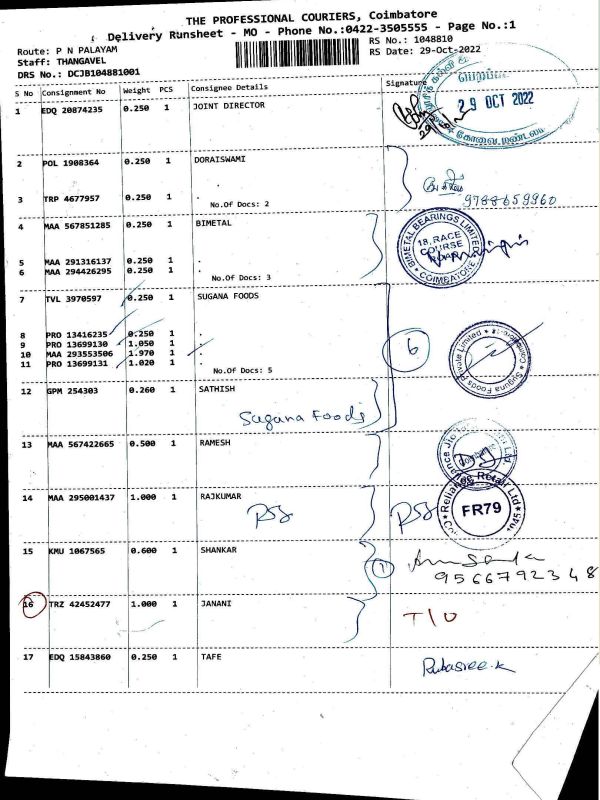 THE PROFESSIONAL COURIERS, Coimbatore
Delivery Runsheet - MO - Phone No.:0422-3505555 - Page No.:1
Route: P N PALAYAM
RS No.: 1048810
Staff: THANGAVEL
RS Date: 29-Oct-2022
DRS No.: DCJB104881001
S No Consignment No Weight PCS Consignee Details Signature
1 EDQ 20874235 0.250 1 JOINT DIRECTOR
29 OCT 2022
2 POL 1908364 0.250 1 DORAISWAMI
3 TRP 4677957 0.250 1 .
No.Of Docs: 2
9788659960
4 MAA 567851285 0.250 1 BIMETAL
BIMETAL BEARINGS LIMITED
18, RACE COURSE ROAD
COIMBATORE
5 MAA 291316137 0.250 1 .
6 MAA 294426295 0.250 1 .
No.Of Docs: 3
7 TVL 3970597 0.250 1 SUGANA FOODS
8 PRO 13416235 0.250 1 .
9 PRO 13699130 1.050 1 .
10 MAA 293553506 1.970 1 .
11 PRO 13699131 1.020 1 .
No.Of Docs: 5
6
Suguna Foods Private Limited
12 GPM 254303 0.260 1 SATHISH
Sugana Foods
13 MAA 567422665 0.500 1 RAMESH
14 MAA 295001437 1.000 1 RAJKUMAR
Reliance Retail Ltd
FR79
15 KMU 1067565 0.600 1 SHANKAR
1
9566792348
16 TRZ 42452477 1.000 1 JANANI
T/O
17 EDQ 15843860 0.250 1 TAFE
Rubasree.k